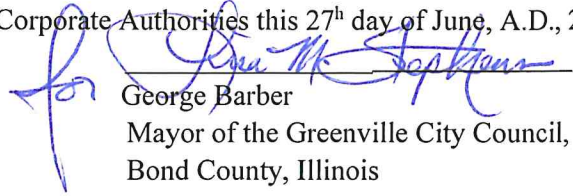 Corporate Authorities this 27ʰ day of June, A.D., 2
for Lisa M. Stephens
George Barber
Mayor of the Greenville City Council,
Bond County, Illinois